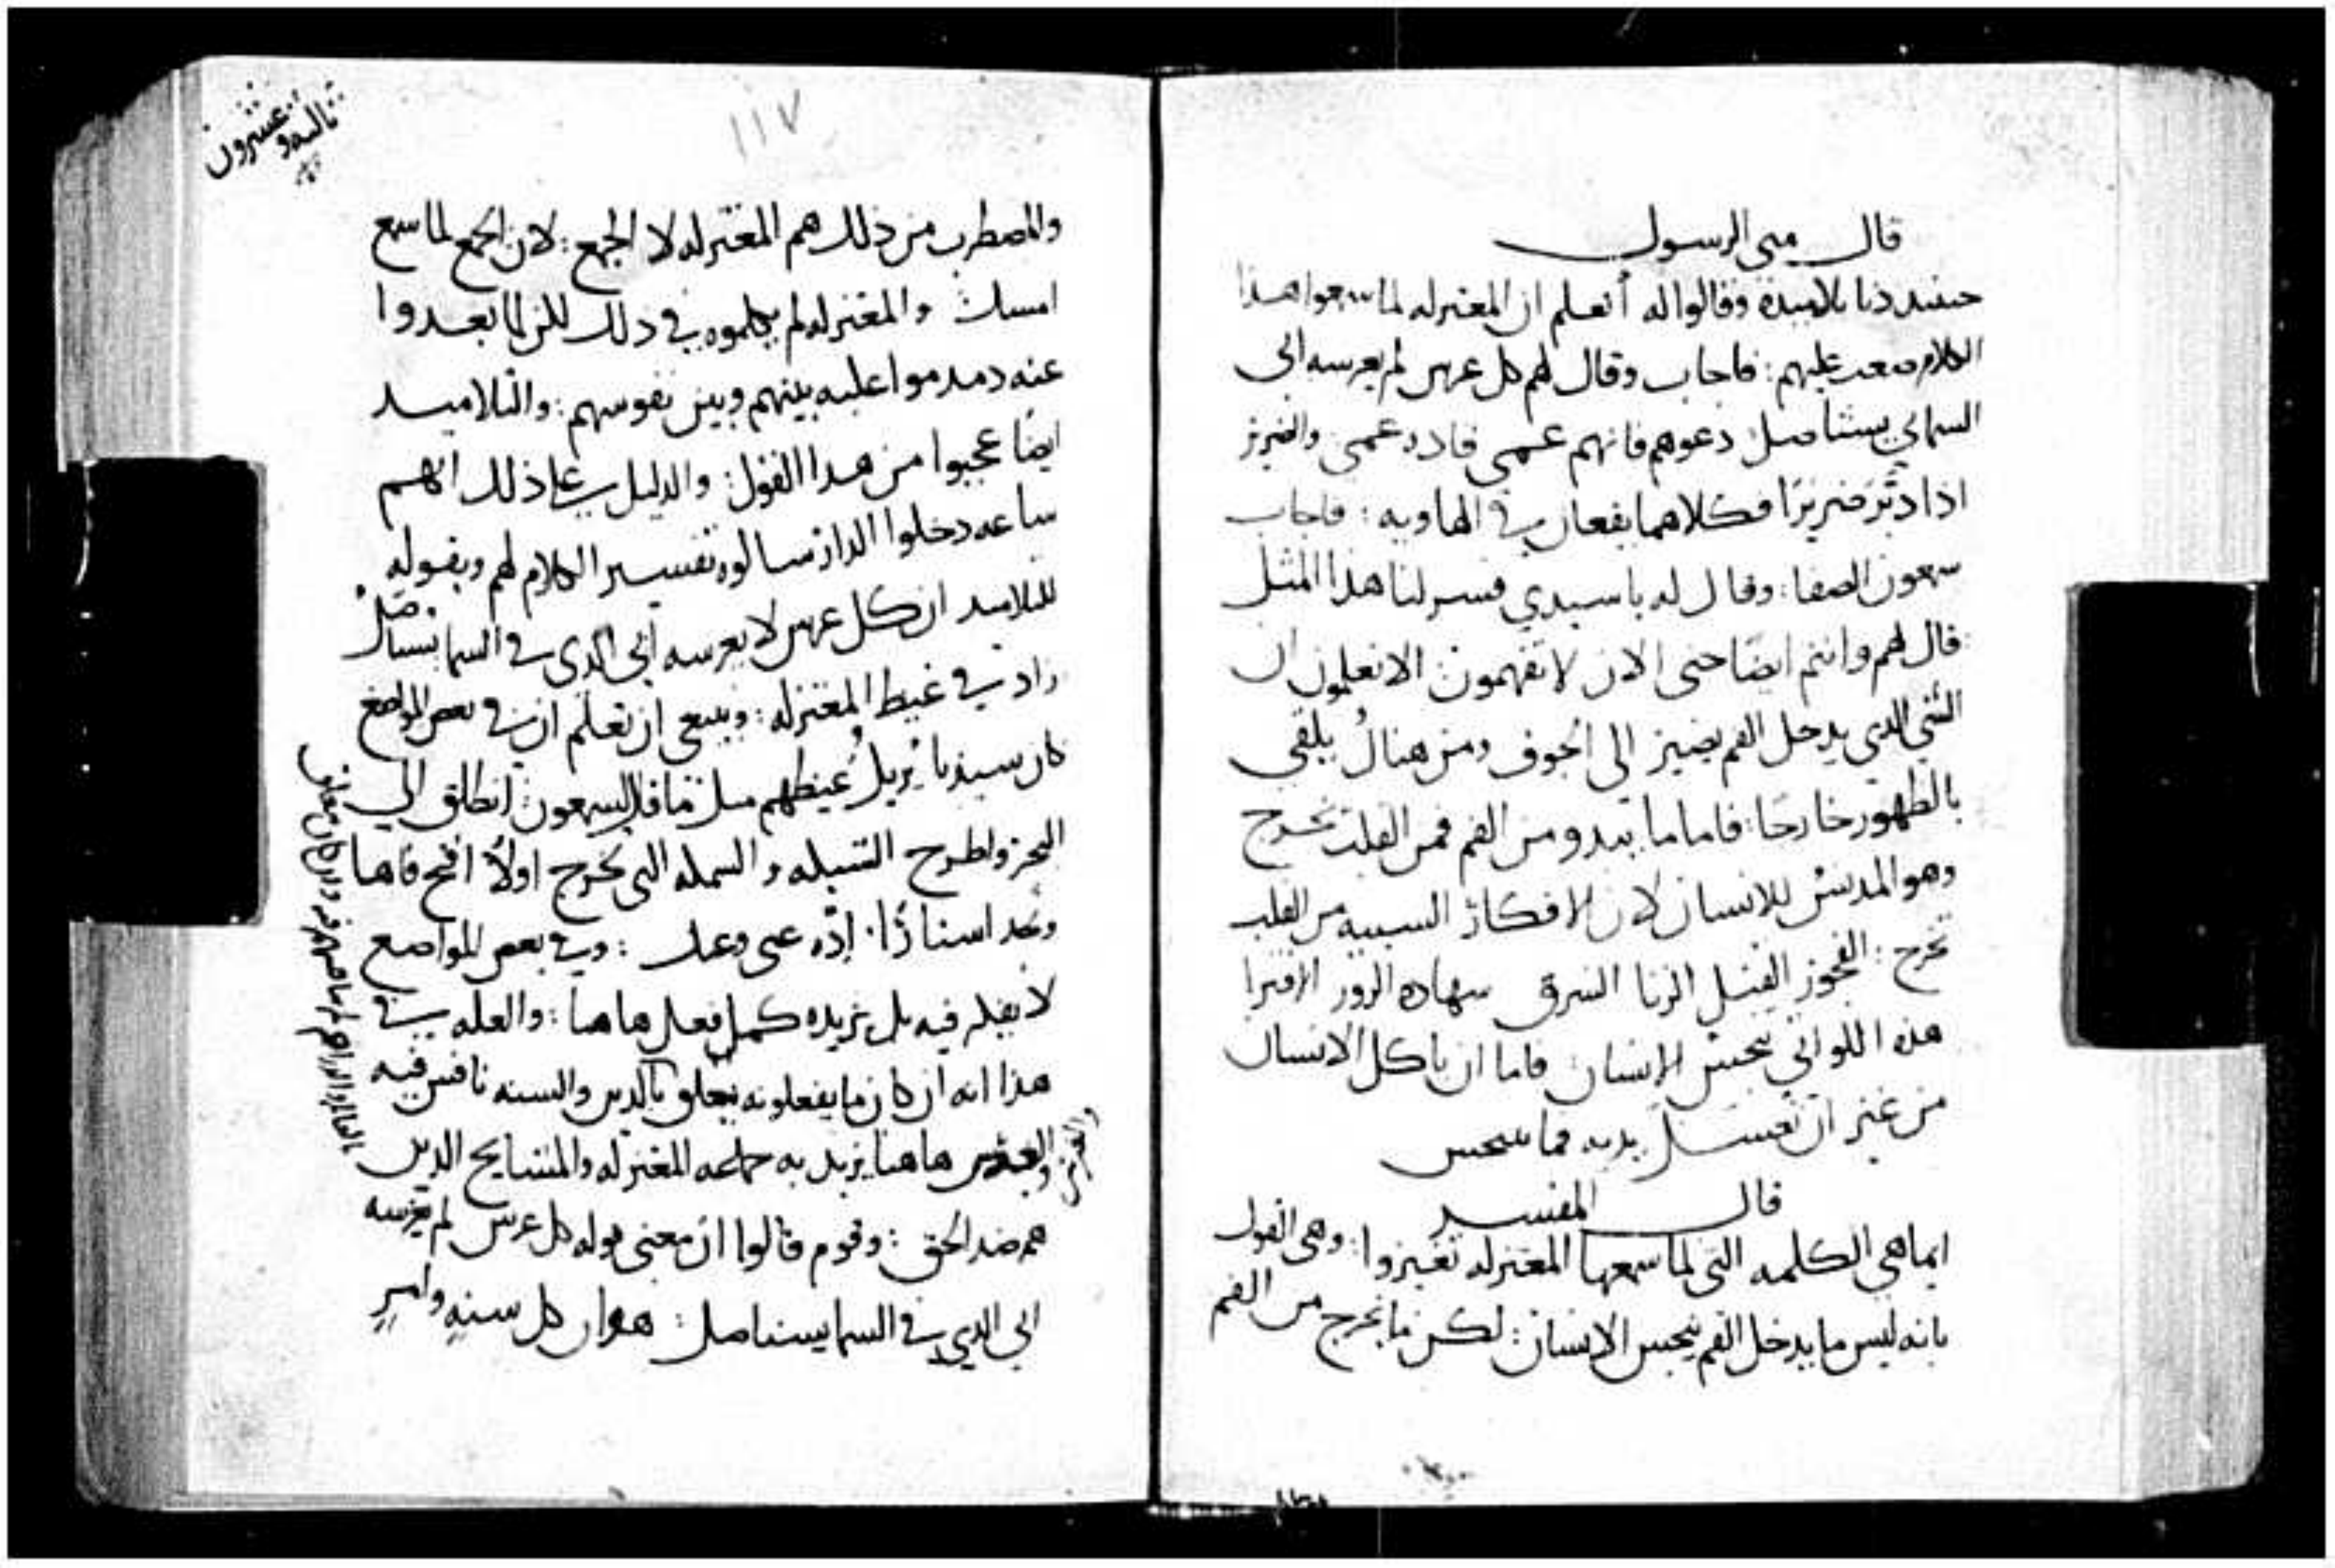 قال متى الرسول
حينيد دنا تلاميذه وقالوا له أتعلم ان المعتزله لما سمعوا هذا
الكلام صعب عليهم : فاجاب وقال لهم كل غرس لم يغرسه ابي
السمائي يستاصل دعوهم فانهم عمي قادة عمي والضرير
اذا دبّر ضريرًا فكلاهما يقعان في الهاويه : فاجاب
سمعون الصفا : وقال له يا سيدي فسر لنا هذا المثل
قال لهم وانتم ايضًا حتى الان لا تفهمون الا تعلمون ان
الشي الذي يدخل الفم يصير الى الجوف ومن هناك يلقى
بالطهور خارجًا : فاما ما يبدو من الفم فمن القلب تخرج
وهو المدنس للانسان لان الافكار السييه من القلب
تخرج : الفجور القتل الزنا السرق شهاده الزور الافترا
هذه اللواتي تنجس الانسان فاما ان ياكل الانسان
من غير ان تغسل يديه فما ينجس
قال المفسر
ايما هي الكلمه التي لما سمعها المعتزله تغيروا : وهي القول
بانه ليس ما يدخل الفم ينجس الانسان : لكن ما يخرج من الفم
١١٧
ثالثه وعشرون
والمضطرب من ذلك هم المعتزله لا الجمع : لان الجمع لما سمع
امسك والمعتزله لم يكلموه في ذلك لكن لما بعدوا
عنه دمدموا عليه بينهم وبين نفوسهم : والتلاميد
ايضًا عجبوا من هذا القول : والدليل على ذلك انهم
ساعه دخلوا الدار سالوه تفسير الكلام لهم وبقوله
للتلاميد ان كل غرس لا يغرسه ابي الذي في السما يستاصل
زاد في غيظ المعتزله : وينبغي ان تعلم ان في بعض المواضع
كان سيدنا يُزيل غيظهم مثل ما قال لسمعون : انطلق الى
البحر واطرح الشبكه والسمكه التي تخرج اولًا افتح فاها
وتجد استارًا . ادّه عني وعنك : وفي بعض المواضع
لا يفكر فيه بل يزيده كمثل فعل هاهنا : والعله في
هذا انه ان كان ما يفعلونه يتعلق بالدين والسنه نافس فيه
والغرس هاهنا يريد به جماعه المعتزله والمشايخ الدين
هم ضد الحق : وقوم قالوا ان معنى قوله كل غرس لم يغرسه
ابي الدي في السما يستاصل : هو ان كل سنه وامر